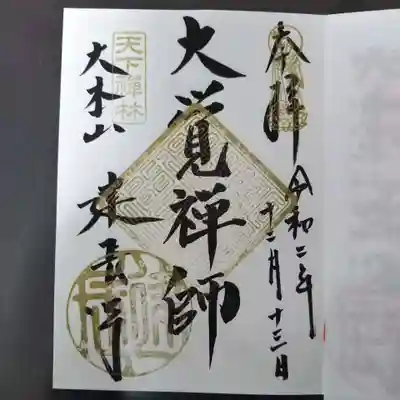 奉拝
令和二年
十二月十三日
大覚禅師
天下禅林
大本山
建長寺